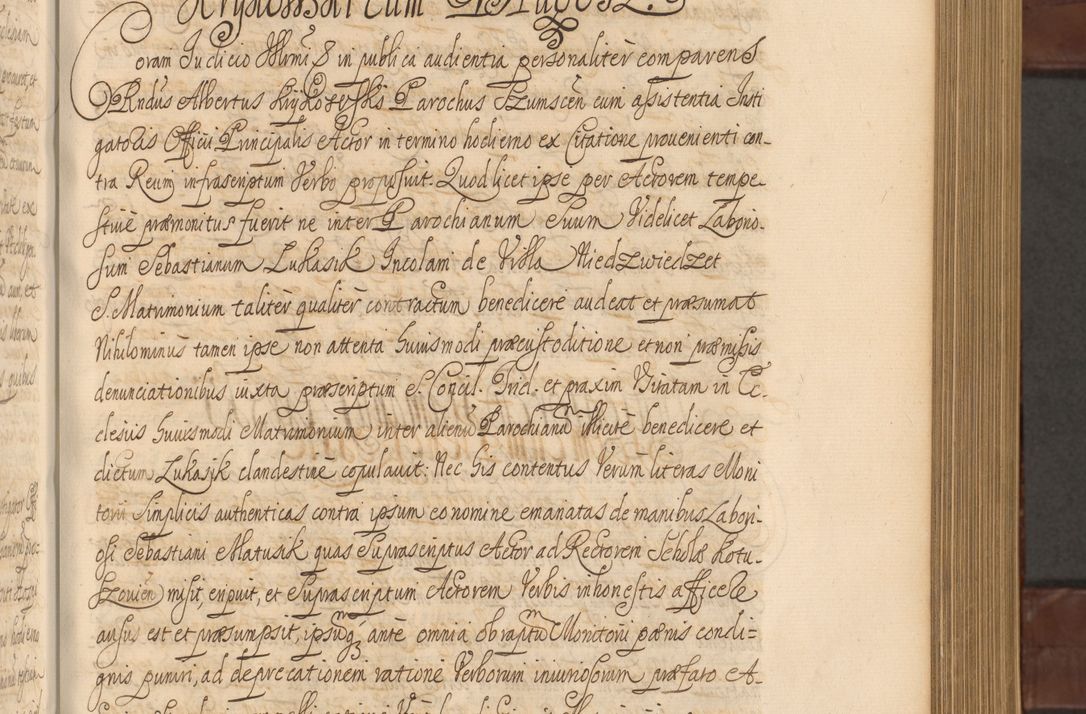 Coram Iudicio Illmi & in publica audientia personaliter comparens
Rndus Albertus Krzykowski Parochus Szumscen cum assistentia Insti
gatoris Officii Principalis Actor in termino hodierno ex Citatione provenienti con-
tra Reum infrascriptum Verbo proposuit. Quod licet ipse per Actorem tempe-
stive præmonitus fuerit ne inter Parochianum Suum Videlicet Laborio-
sum Sebastianum Lukasik Incolam de Villa Niedzwiedzet
S. Matrimonium taliter qualiter contractum benedicere audeat et præsumat
Nihilominus tamen ipse non attenta huiusmodi præcustoditione et non præmissis
denunciationibus iuxta præscriptum S. Concil. Trid. et praxim Usitatam in Ec-
clesiis huiusmodi Matrimonium inter alienū Parochianū illicite benedicere et
dictum Lukasik clandestine copulavit. Nec his contentus Verum literas Moni
torii Simplicis authenticas contra ipsum eo nomine emanatas de manibus Labori-
osi Sebastiani Matusik quas Suprascriptus Actor ad Rectorem Scholæ Kotu-
szovien misit, eripuit, et Suprascriptum Actorem Verbis inhonestis afficere
ausus est et præsumpsit, ipsumq3 ante omnia ob raptum Monitorii pænis condi=
gnis puniri, ad deprecationem ratione Verborum iniuriosorum præfato A-